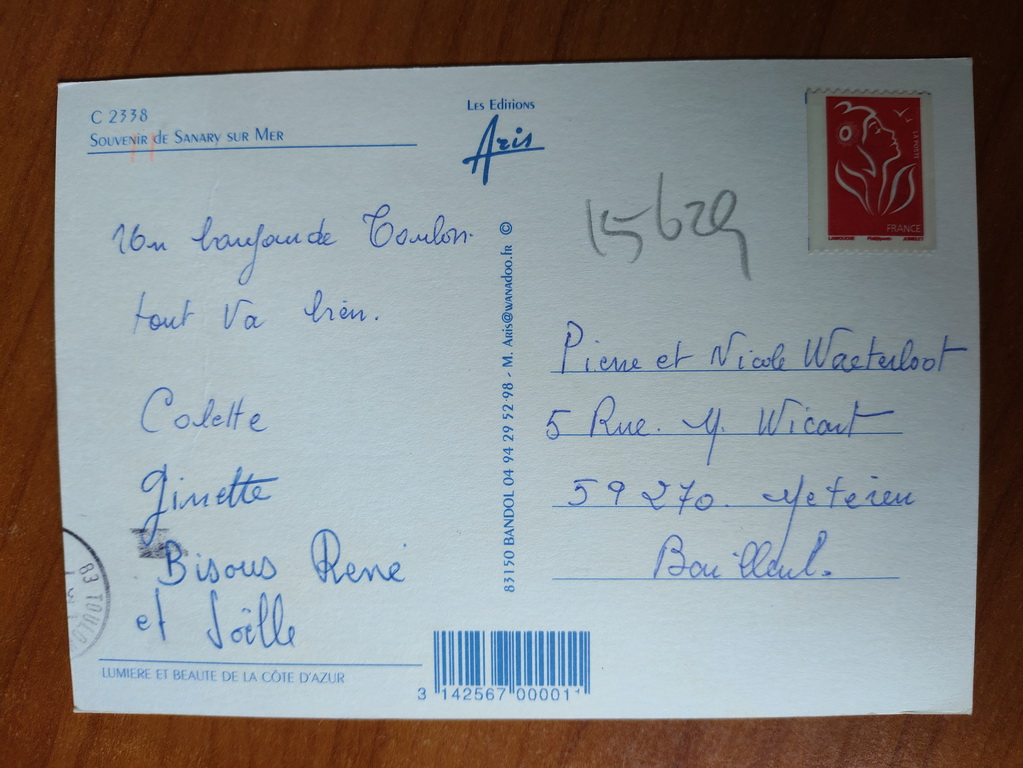 C 2338
Souvenir de Sanary sur Mer
Les Editions
Aris
LA POSTE
FRANCE
15629
Un bonjour de Toulon.
tout va bien.
Colette
Ginette
Bisous René
et Joëlle
Pierre et Nicole Waeterloot
5 Rue. M. Wicart
59270. Meteren
Bailleul.
83150 BANDOL 04 94 29 52 98 - M. Aris@wanadoo.fr ©
83 TOULO
LUMIERE ET BEAUTE DE LA CÔTE D'AZUR
3 142567 00001